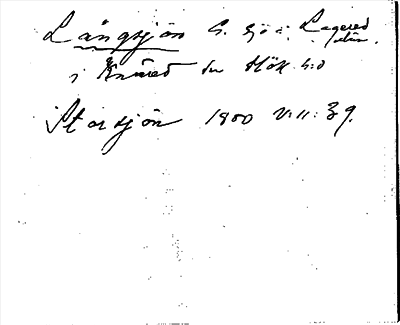 Långsjön G. sjö i Lagered
i Knäred sn Hök h:d
Storsjön 1800 V:11:39.